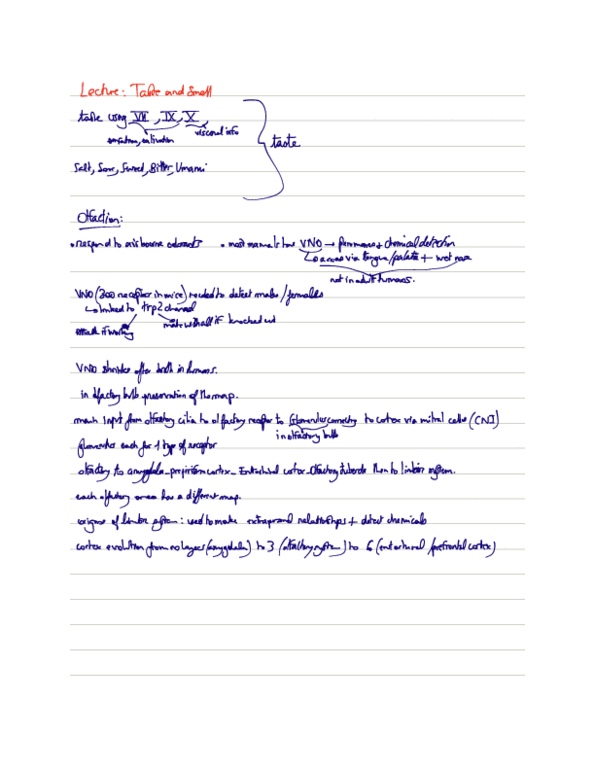 Lecture: Taste and Smell
taste using VII, IX, X
salivation visceral info
taste
Salt, Sour, Sweet, Bitter, Umami
Olfaction:
• respond to airbourne odorants • most mamals have VNO → pheromones + chemical detection
↳ access via tongue/palate + wet nose
not in adult humans.
VNO (300 receptor in mice) needed to detect males / females
↳ linked to trp2 channel
attack if working mate with all if knocked out
VNO shrinks after birth in humans.
in olfactory bulb preservation of the map.
mouth input from olfactory cilia to olfactory receptor to Glomerulus to cortex via mitral cells (CNI)
in olfactory bulb
glomerulus each for 1 type of receptor
olfactory to amygdala - piriform cortex - Entorhinal cortex - olfactory tubercle then to limbic system.
each olfactory area has a different map.
origins of limbic system: used to make relationships + detect chemicals
cortex evolution from no layers (amygdala) to 3 (olfactory system) to 6 (entorhinal /prefrontal cortex)